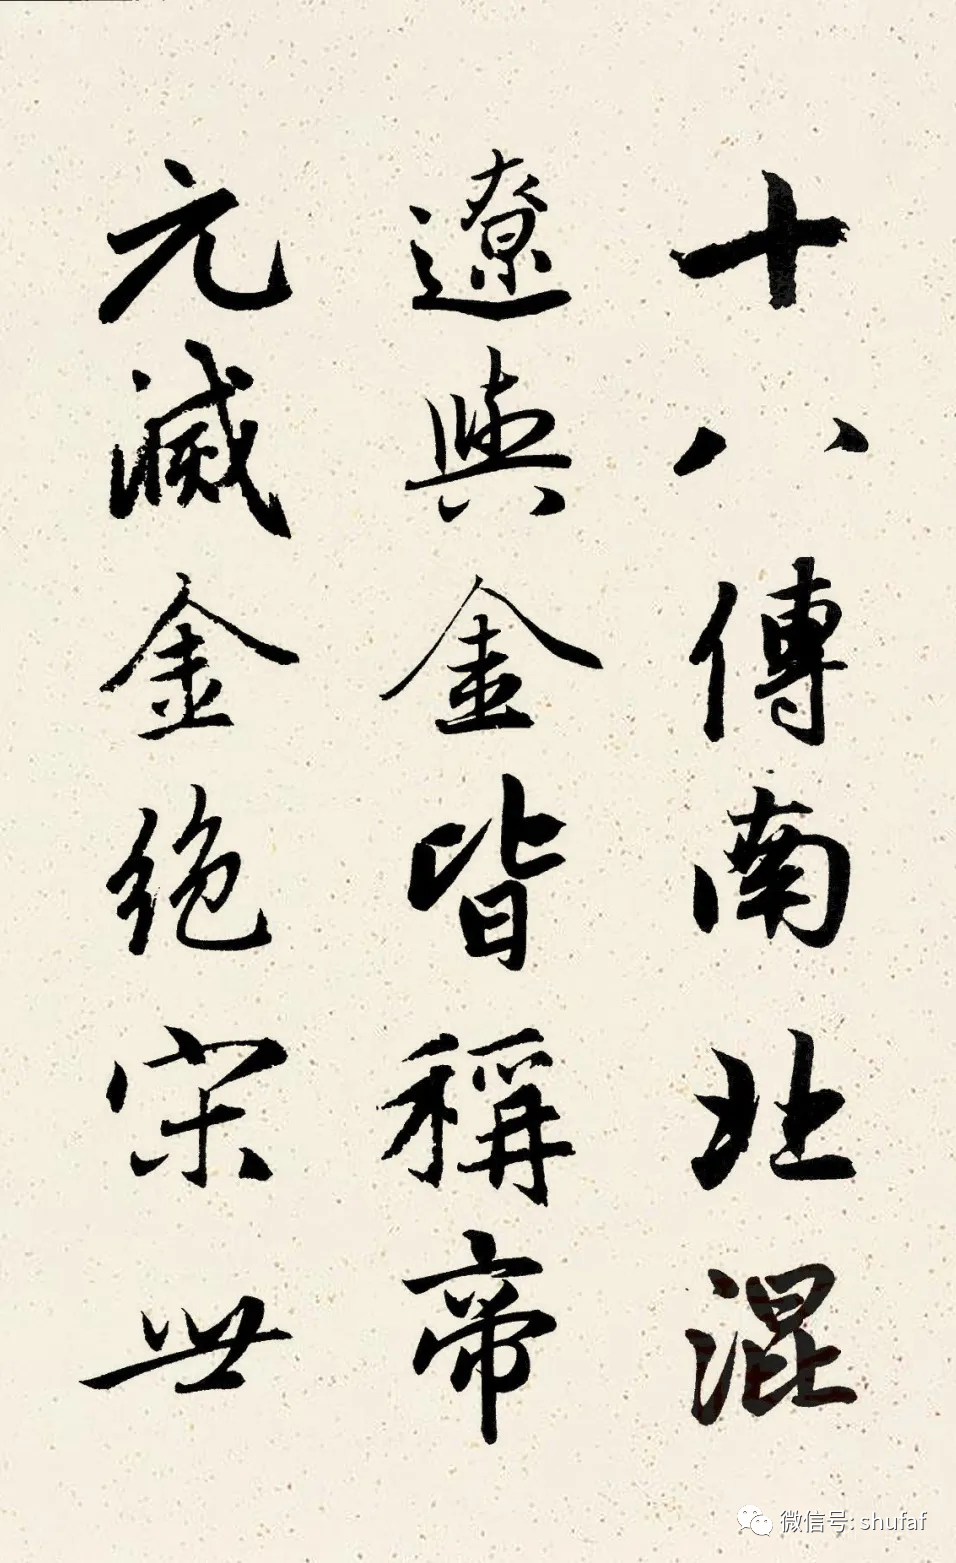 十八傳南北混
遼與金皆稱帝
元滅金絶宋世
微信号: shufaf